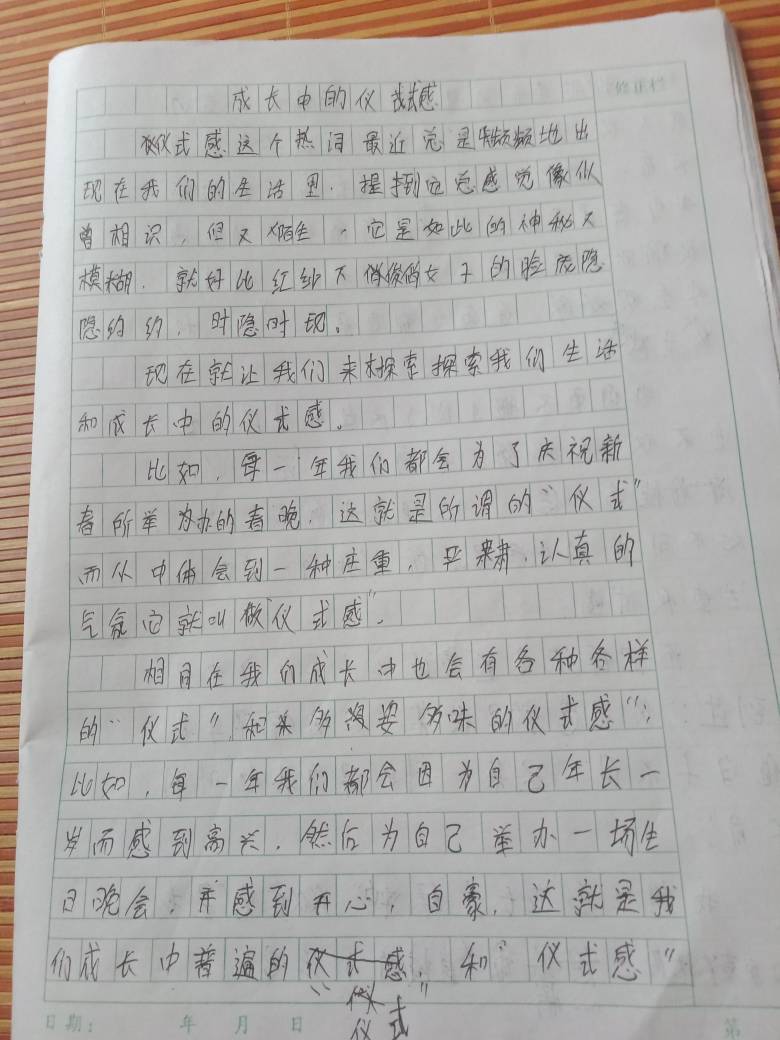 成长中的仪式感
仪式感这个热词最近总是频频地出
现在我们的生活里.提到它总感觉像似
曾相识,但又陌生,它是如此的神秘又
模糊.就好比红纱下俏女子的脸庞隐
隐约约,时隐时现。
现在就让我们来探索探索我们生活
和成长中的仪式感。
比如,每一年我们都会为了庆祝新
春所举办的春晚,这就是所谓的"仪式"
而从中体会到一种庄重,严肃,认真的
气氛它就叫做"仪式感".
相同在我们成长中也会有各种各样
的"仪式",和多姿多味的仪式感";
比如,每一年我们都会因为自己年长一
岁而感到高兴,然后为自己举办一场生
日晚会,并感到开心,自豪,这就是我
们成长中普遍的,和"仪式感"
"仪式"
日期: 年 月 日 第